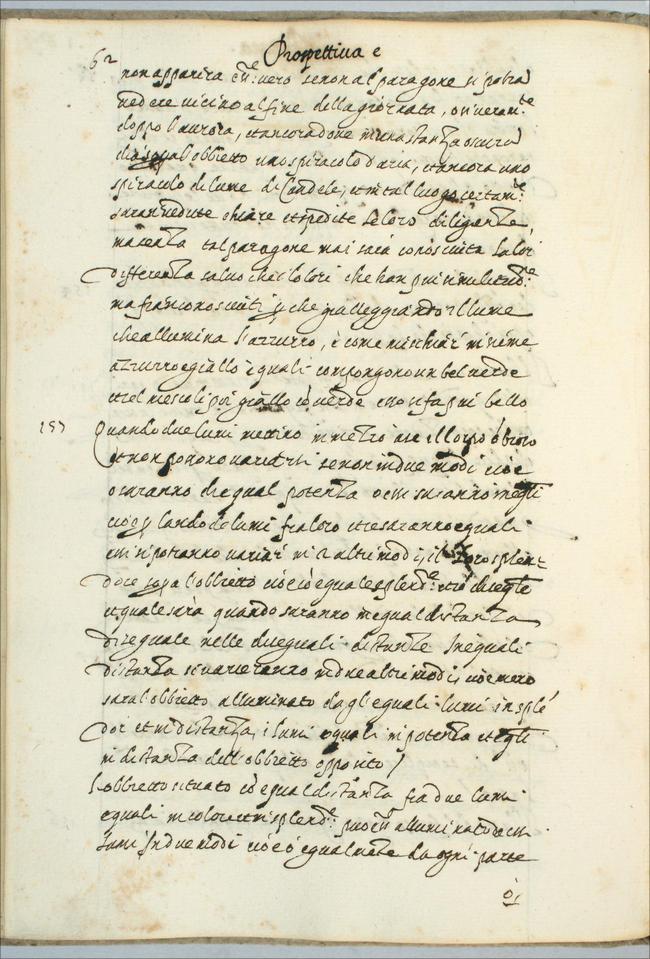 62
Prospettiva e
non apparira ch'e vero se non al paragone si potra
vedere vicino al fine della giornata, o
doppo l'aurora, et ancora dove in una stanza oscura
l'obbietto uno spiracolo d'aria, et ancora uno
spiracolo di lume di Candele, et in tal luogo certam:te
saran vedute chiare et spedite le loro diligenze,
ma senza tal paragone mai sara conosciuta la lor
differenza salvo che i colori che han piu similitud:ne
ma sian conosciuti che gialleggiando il lume
che allumina l'azzurro, è come mischiar insieme
azzurro e giallo i quali compongono un bel verde
et se mescoli poi giallo cō verde esso si fa piu bello
157
Quando due lumi mettino in mezzo a se il corpo ōbroso
et non possono variarsi se non in due modi cioè
o saranno di egual potenza o essi saranno ineguali
cioè parlando de lumi fra loro et se saranno equali
essi si potranno variar in 2 altri modi, il loro splen-
dore sopa l'obbietto cioè cō equale splend:e et cō disegle
equale sara quando saranno in equal distanza
disequale nelle disequali distanze In equali
distanza si varieranno in due altri modi, cioè
sara l'obbietto alluminato dagl'equali lumi in splē
dor et in distanza, i lumi equali in potenza et egli
in distanza dell'obbietto opposito /
L'obbietto situato cō equal distanza fra due lumi
equali in colore et in splend:e puo ess alluminato da essi
lumi In due modi cioè o equalmēte da ogni parte
ò,